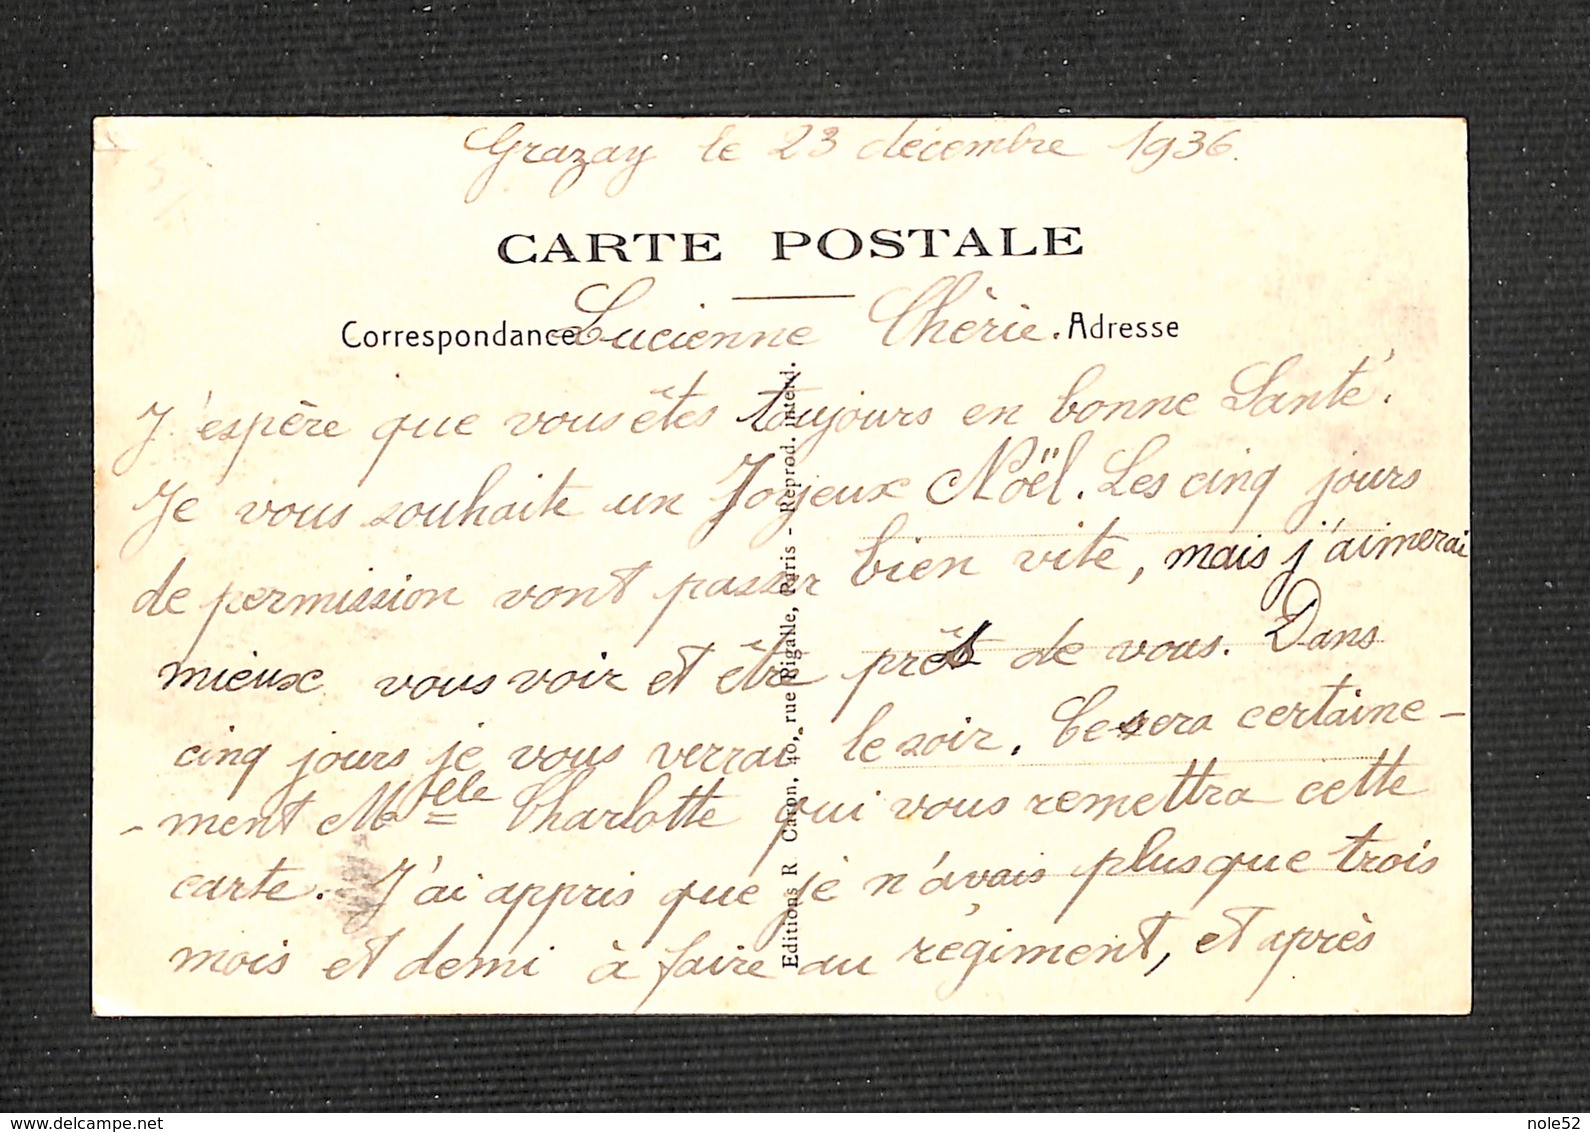 Grazay le 23 décembre 1936.
CARTE POSTALE
Correspondance
Lucienne Chèrie.
Adresse
J'espère que vous êtes toujours en bonne Santé.
Je vous souhaite un Joyeux Noël. Les cinq jours
de permission vont passer bien vite, mais j'aimerai
mieux vous voir et être prêt de vous. Dans
cinq jours je vous verrai le soir. Ce sera certaine-
-ment Melle Charlotte qui vous remettra cette
carte. J'ai appris que je n'avais plus que trois
mois et demi à faire au régiment, et après
Editions R Caron, 40, rue Pigalle, Paris - Reprod. interd.
delcampe.net
nole52